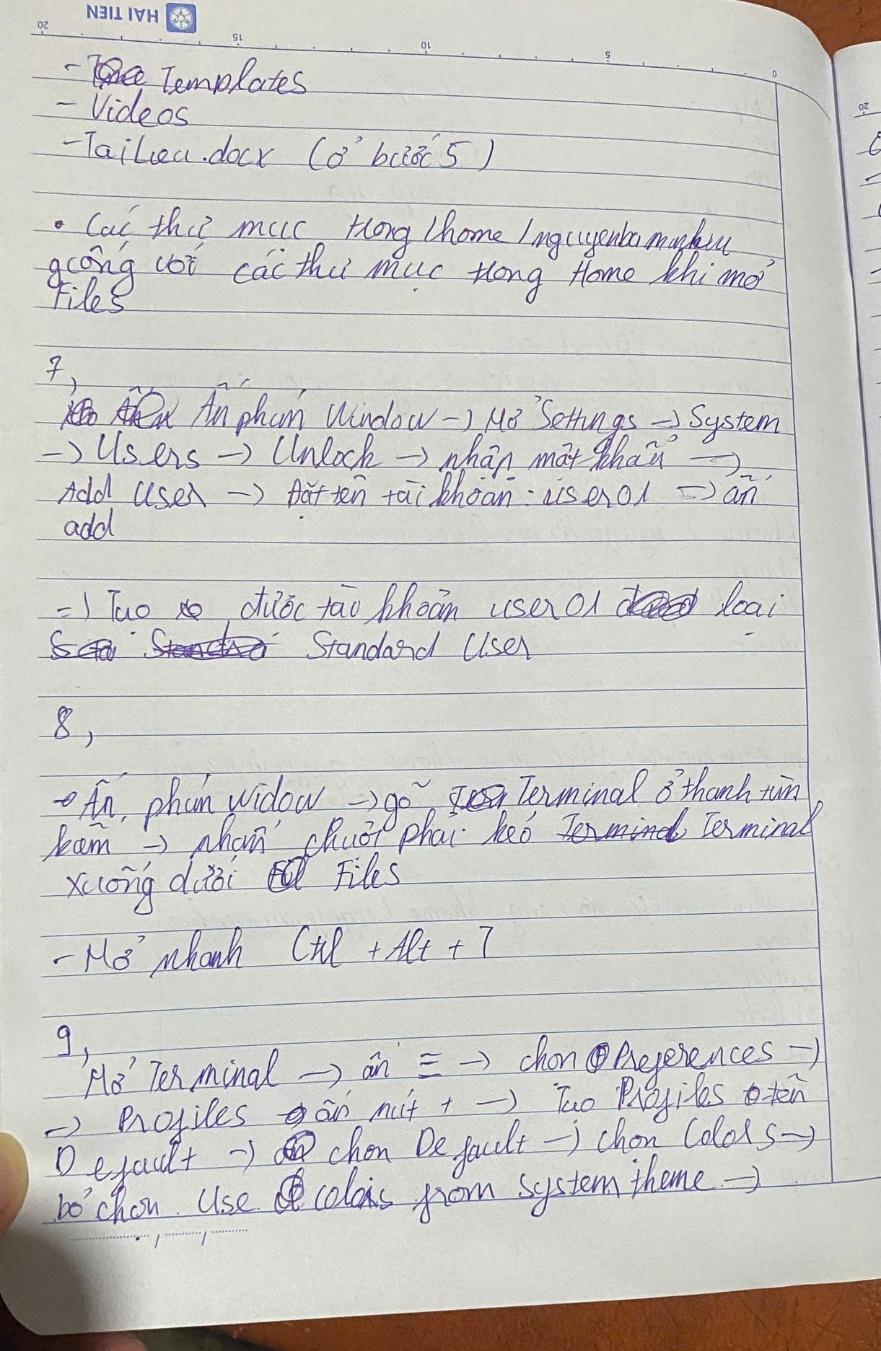 HAI TIEN
20 15 10 5 0
20
- Templates
- Videos
- TaiLieu.docx (ở bước 5)
• Các thư mục trong /home/nguyenbaminhieu
giống với các thư mục trong Home khi mở
Files
7,
Ấn phím Window → Mở Settings → System
→ Users → Unlock → nhập mật khẩu →
Add User → Đặt tên tài khoản: user01 → ấn
add
=) Tạo được tào khoản user01 loại
Standard User
8,
Ấn phím Widow → gõ Terminal ở thanh tìm
kiếm → nhấn chuột phải kéo Terminal
xuống dưới Files
- Mở nhanh Ctrl + Alt + T
9,
Mở Terminal → ấn ≡ → chọn Preferences →
→ Profiles ấn nút + → Tạo Profiles tên
Default → chọn Default → chọn Colors →
bỏ chọn Use colors from system theme →